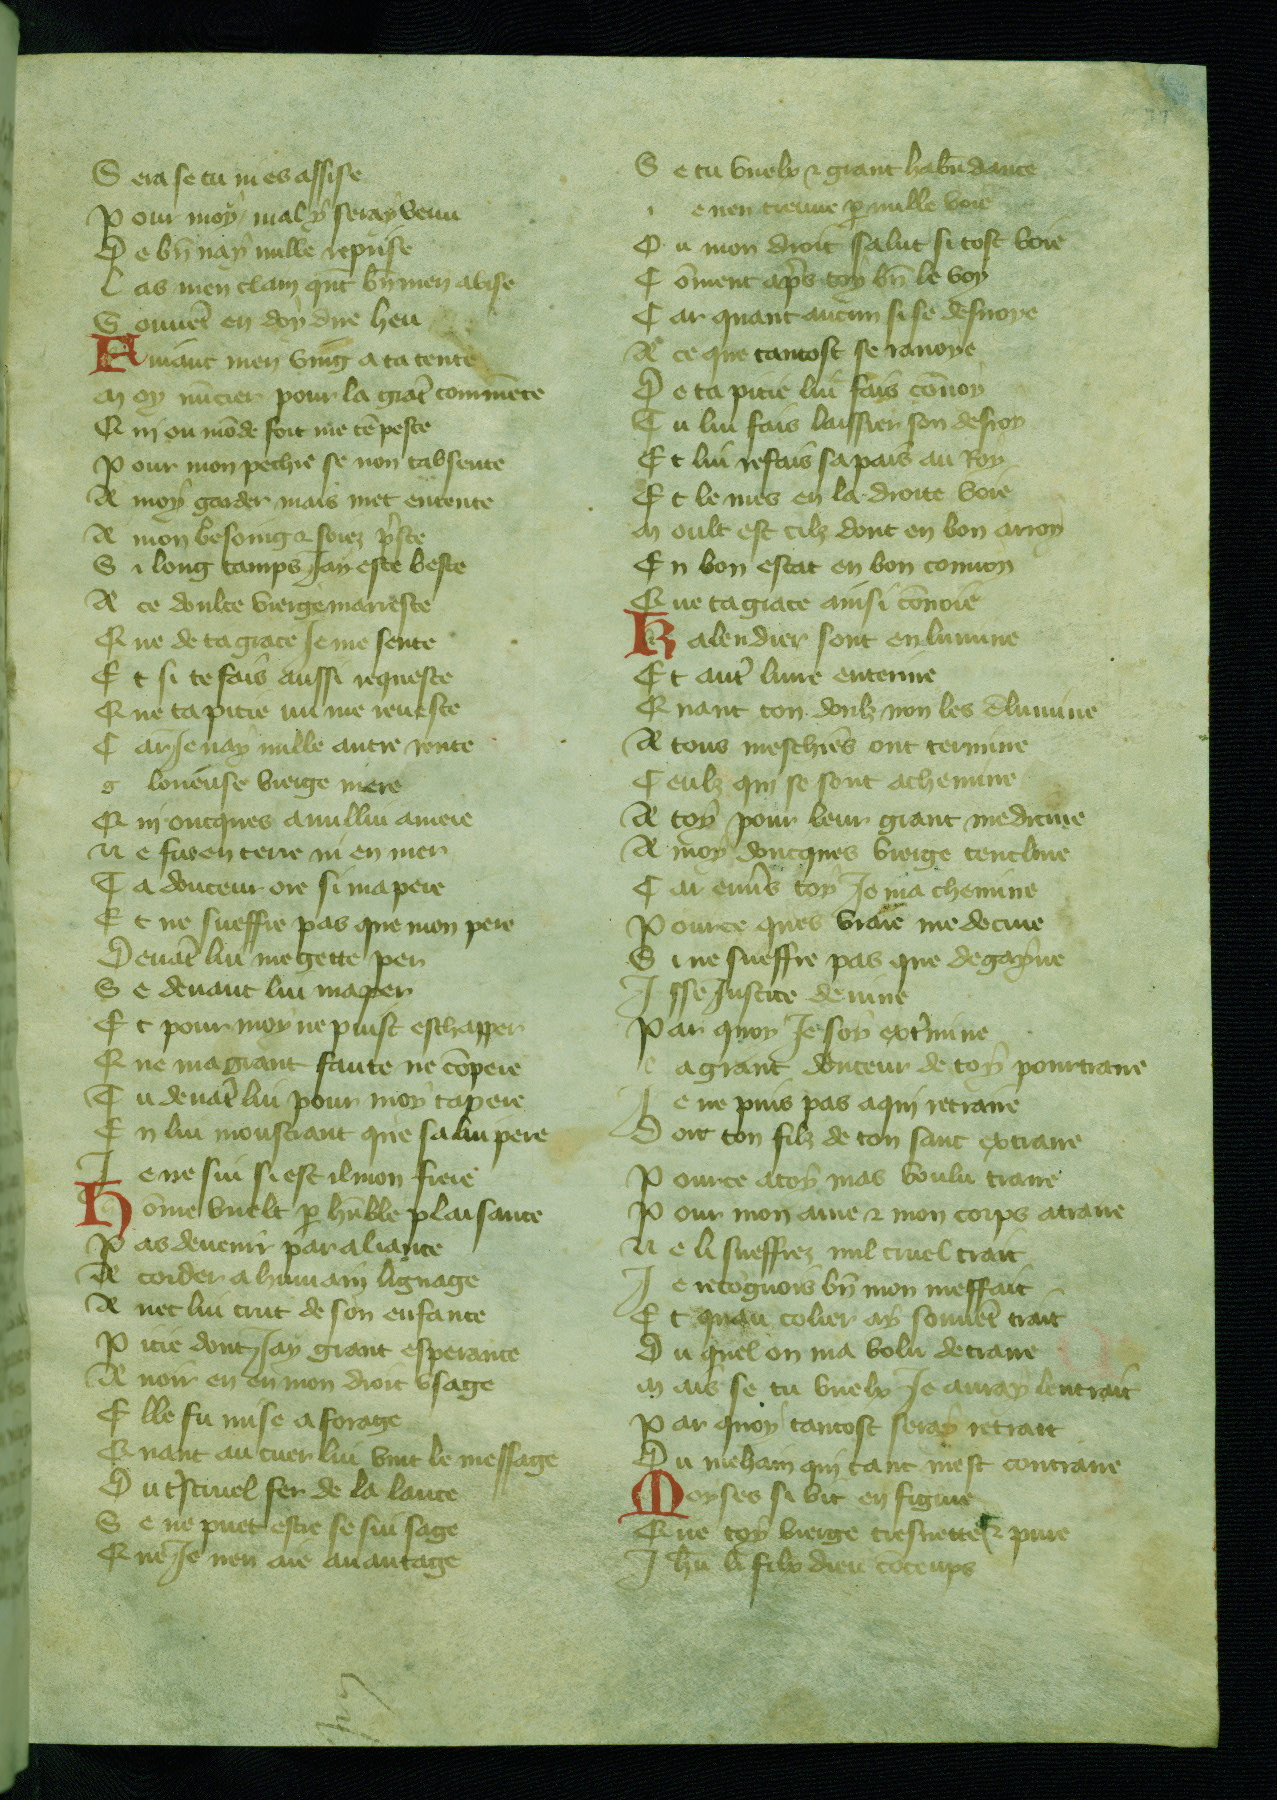 S era se tu mes assise
P our moy mal y seray venu
D e bn̄ nay nulle reprise
L as men clam qn̄t bn̄ men avise
S ouuēt en doy dire heu
F uiāut men ving a ta tente
M oy nūcier pour la grāt commēte
Q ui ou mōde foit me tēpeste
P our mon pechie se non tabsente
A moy garder mais met entente
A mon besoing & soiez p̄ste
S i long tamps Jay este beste
A ce doulce vierge marieste
Q ue de ta grace Je me sente
E t si te fais aussi requeste
Q ue ta pitie nu me reueste
C ar Je nay nulle autre rente
g lorieuse vierge mere
Q ui oncques a nulluy amere
N e fus en terre ni en mer
T a douceur ore si mapere
E t ne sueffre pas que mon pere
D euāt lui me gette per
S e deuant lui maper
E t pour moy ne puist eschapper
Q ue ma grant faute ne cōpere
T u deuāt lui pour moy tapere
E n lui moustrant que sa lui pere
I e ne sui si est il mon frere
H ōme vuelt p̱ hūble plaisance
P as deuenir par aliance
A corder a humain lignage
A uec lui crut de son enfance
P itie dont Jay grant esperance
A uoir en en mon droit vsage
E lle fu mise a forage
Q uant au cuer lui vint le message
D u t̄scruel fer de la lance
S e ne puet estre se sui sage
Q ue Je nen aie auantage
S e tu vuelx & grant habūdance
e nen treuue p̱ nulle voie
O u mon droit salut si tost voie
C ōment ap̄s toy bn̄ le voy
C ar quant aucun si se desuoye
A ce que tantost se rauoye
D e ta pitie lui fais cōuoy
T u lui fais laissier son desroy
E t lui refais sa pais au Roy
E t le mes en la droite voie
M oult est cilz dont en bon arroy
E n bon estat en bon conuoy
Q ue ta grace ainsi cōuoie
K alendier sont enlumine
E t aut̄ liure enterine
Q uant ton doulz non les ēlumine
A tous meschies ont termine
C eulz qui se sont achemine
A toy pour leur grant medicine
A moy doncques vierge tencline
C ar enu̅s toy Je ma chemine
P ource ques vraie medecine
S i ne sueffre pas que degayne
I sse Justice deuine
P ar quoy Je soy ext̄mine
L a grant douceur de toy pourtraire
I e ne puis pas a qui retraire
D oit ton filz de ton sanc extraire
P ource a toy mas voulu traire
P our mon ame & mon corps atraire
N e li sueffrez nul cruel trait
I e recognois bn̄ mon meffait
E t quau colier ay souuēt trait
D u quel on ma volu detraire
M ais se tu vuelx Je auray lentrait
P ar quoy tantost seray retrait
D u mehain qui tant mest contraire
M oyses si vit en figure
Q ue toy vierge tresnette & pure
I hū li filx dieu conceups